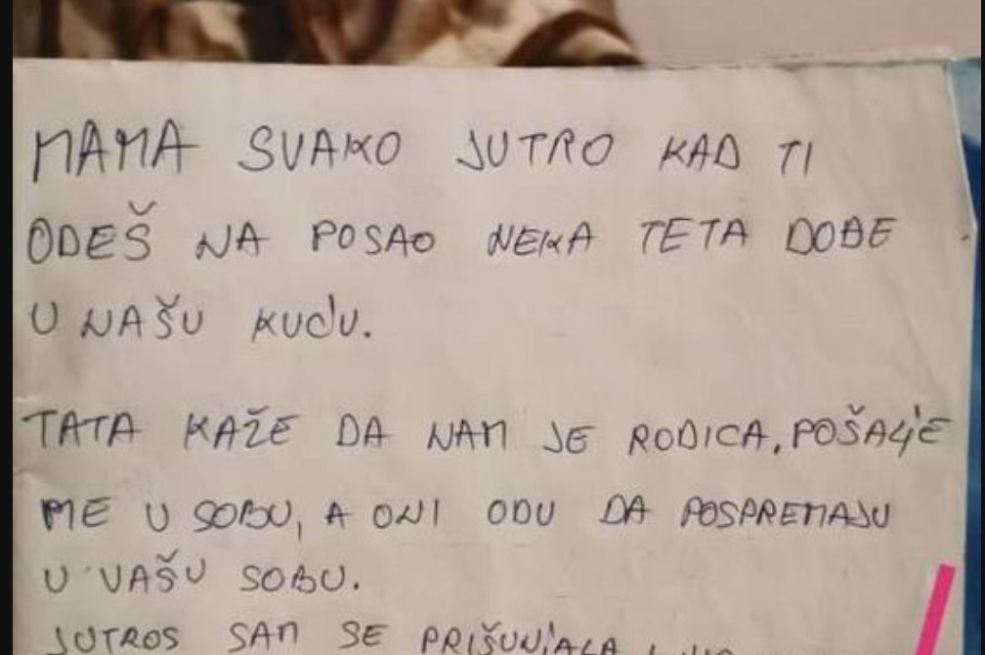 MAMA SVAKO JUTRO KAD TI
ODEŠ NA POSAO NEKA TETA DOĐE
U NAŠU KUĆU.
TATA KAŽE DA NAM JE RODICA. POŠALJE
ME U SOBU, A ONI ODU DA POSPREMAJU
U VAŠU SOBU.
JUTROS SAM SE PRIŠUNJALA I